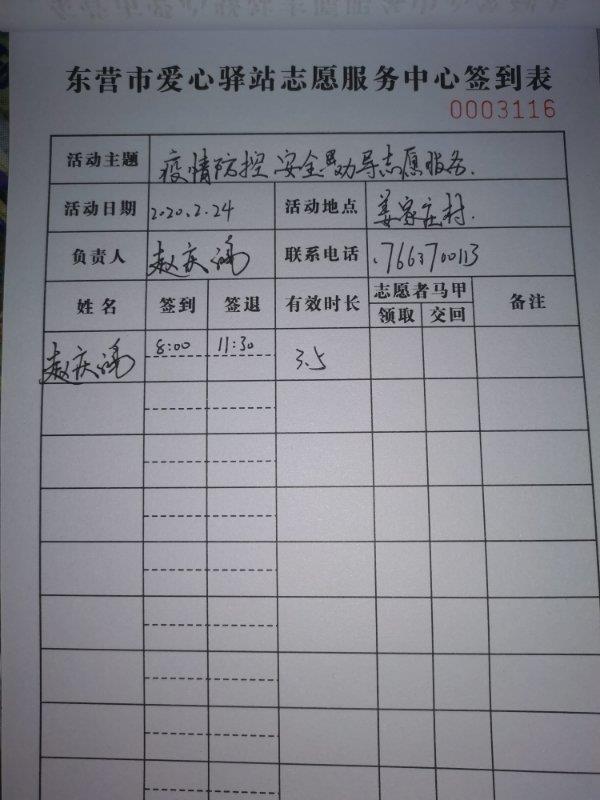 东营市爱心驿站志愿服务中心签到表
0003116
活动主题 疫情防控安全劝导志愿服务.
活动日期 2020.2.24 活动地点 姜家庄村.
负责人 赵庆 联系电话 17663700113
姓名 签到 签退 有效时长 志愿者马甲 备注
领取 交回
赵庆 8:00 11:30 3.5